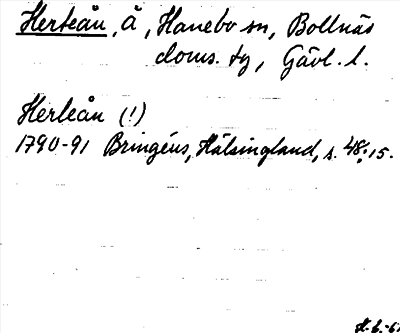 Herteån, å, Hanebo sn, Bollnäs
doms. tg, Gävl. l.
Herleån (!)
1790-91 Bringéus, Hälsingland, s. 48; 15.